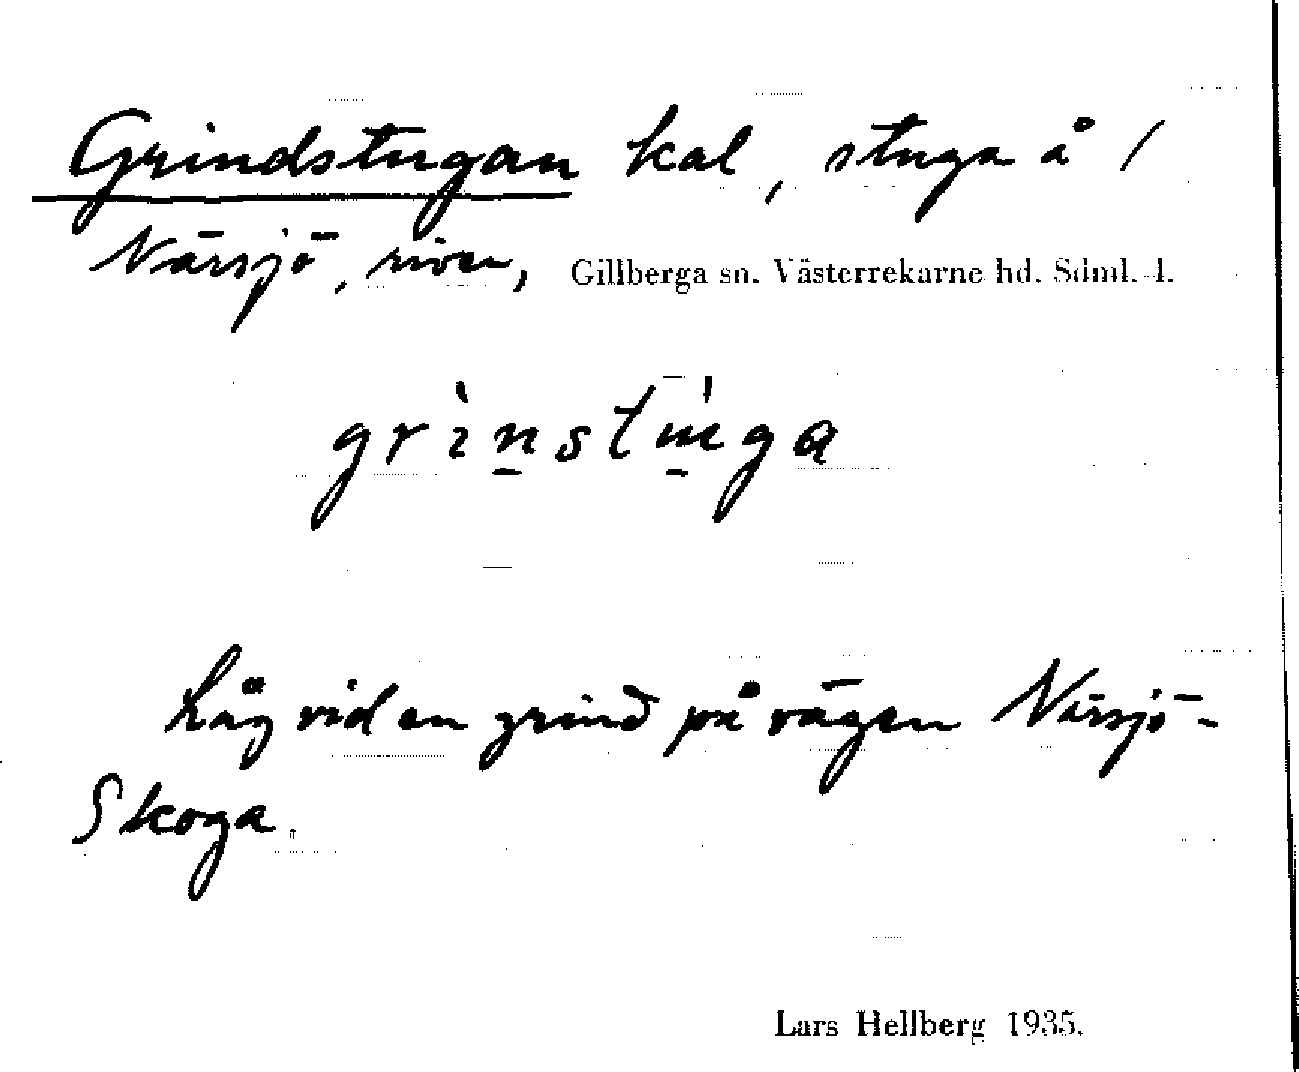 Grindstugan kal, stuga å /
Närsjö, riven, Gillberga sn. Västerrekarne hd. Sdml. l.
grìnstúga
Låg vid en grind på vägen Närsjö-
Skoga.
Lars Hellberg 1935.